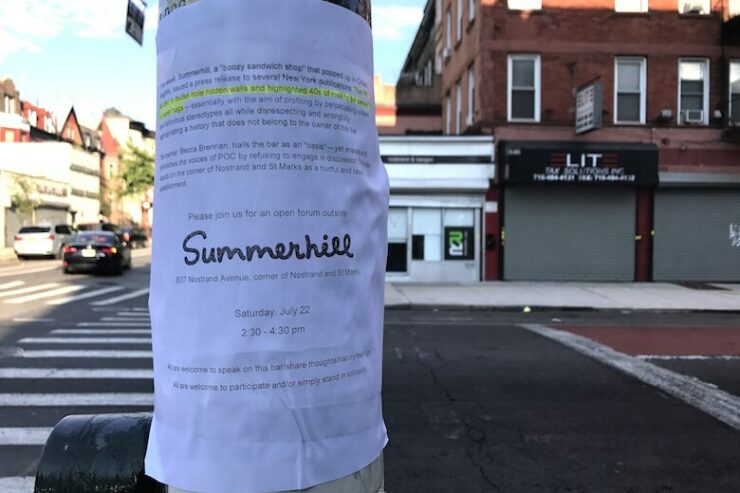 week, Summerhill, a "boozy sandwich shop" that popped up in Crown
issued a press release to several New York publications. The PR
to bullet-hole ridden walls and highlighted 40s of rosé to be served
bags – essentially with the aim of profiting by perpetuating
ridiculous stereotypes all while disrespecting and wrongfully
a history that does not belong to the owner of this bar.
The owner, Becca Brennan, hails the bar as an "oasis" – yet erases and
the voices of POC by refusing to engage in discussion.
on the corner of Nostrand and St Marks as a hurtful and racist
establishment.
Please join us for an open forum outside
Summerhill
(637 Nostrand Avenue, corner of Nostrand and St Marks)
Saturday, July 22
2:30 - 4:30 pm
All are welcome to speak on this bar/share thoughts/history/feelings
All are welcome to participate and/or simply stand in solidarity
LIT
TAX SOLUTIONS INC